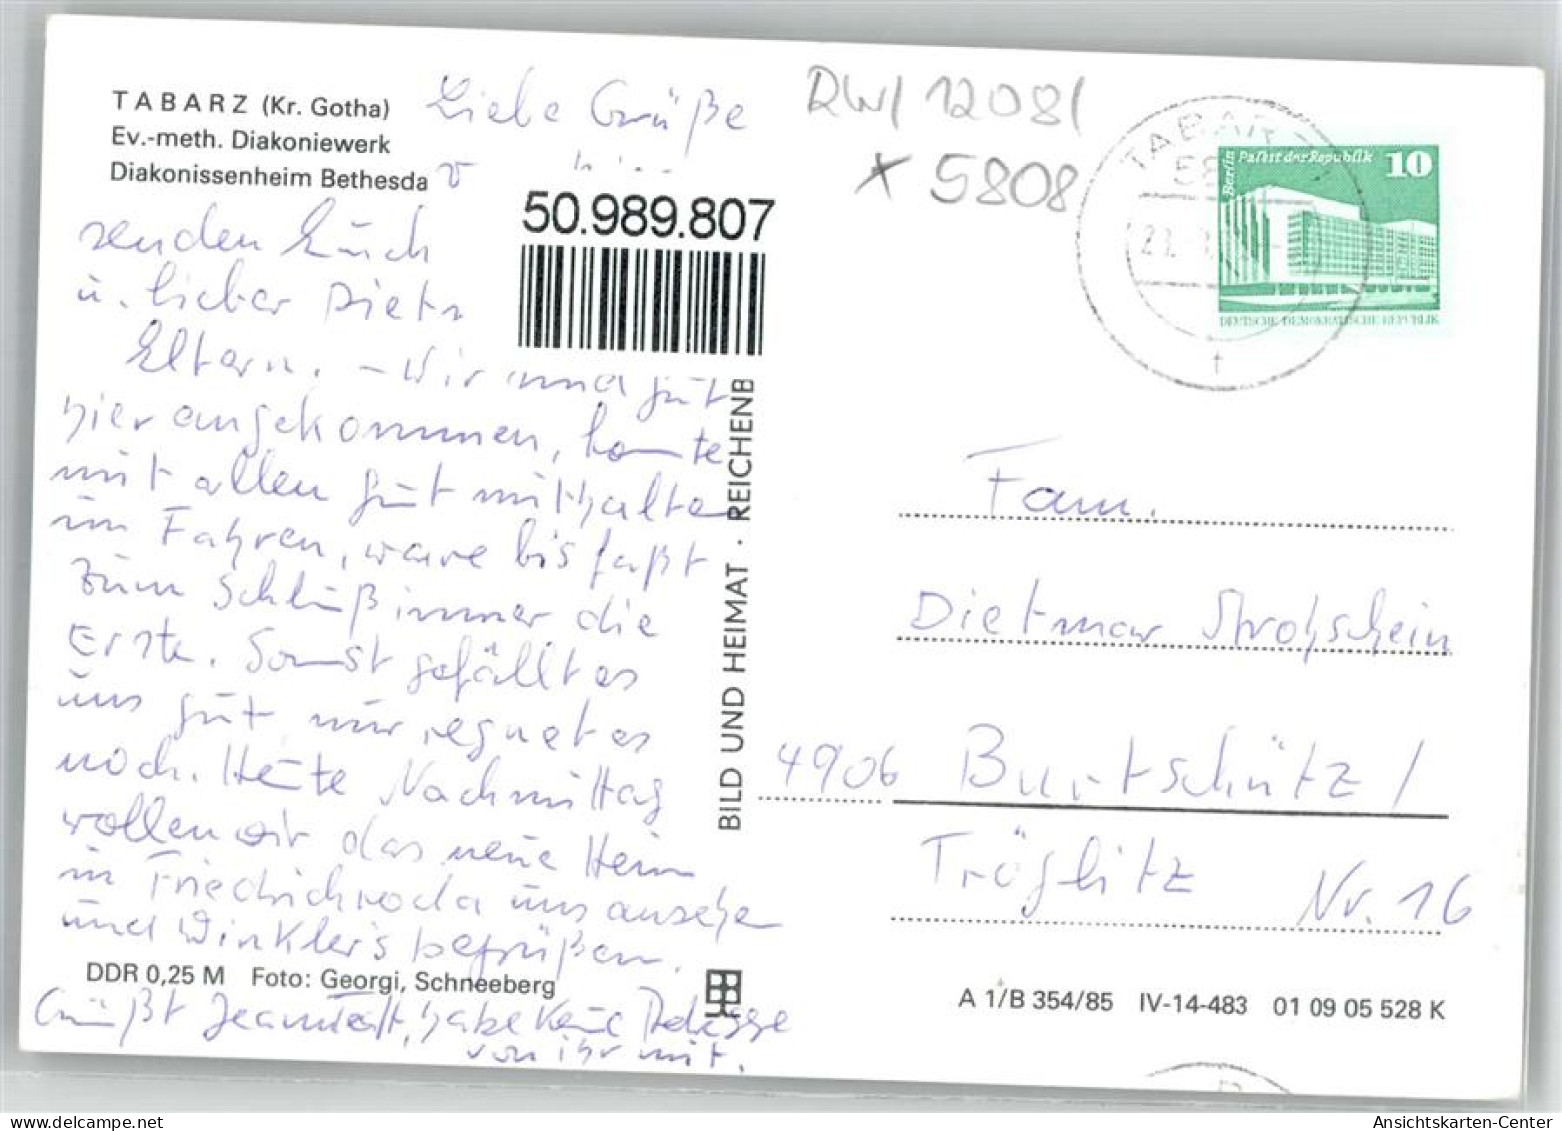 TABARZ (Kr. Gotha)
Ev.-meth. Diakoniewerk
Diakonissenheim Bethesda
Liebe Grüße
v
senden Euch
u. lieber Diets
Eltern. – Wir sind gut
hier angekommen, konnte
mit allen gut mithalten
im Fahren, ware bis faßt
zum Schluß immer die
Erste. Sonst gefällt es
uns gut nur regnet es
noch. Heute Nachmittag
wollen wir das neue Heim
in Friedrichroda uns ansehen
und Winkler's begrüßen.
DDR 0,25 M Foto: Georgi, Schneeberg
Grüßt
habe keine Adresse
von ihr mit.
50.989.807
BILD UND HEIMAT · REICHENB
RW/ 12081
x 5808
TABARZ
58
t
Berlin Palast der Republik 10
DEUTSCHE DEMOKRATISCHE REPUBLIK
Fam.
Dietmar Strohschein
4906 Burtschütz /
Tröglitz Nr. 16
A 1/B 354/85 IV-14-483 01 09 05 528 K
Ansichtskarten-Center